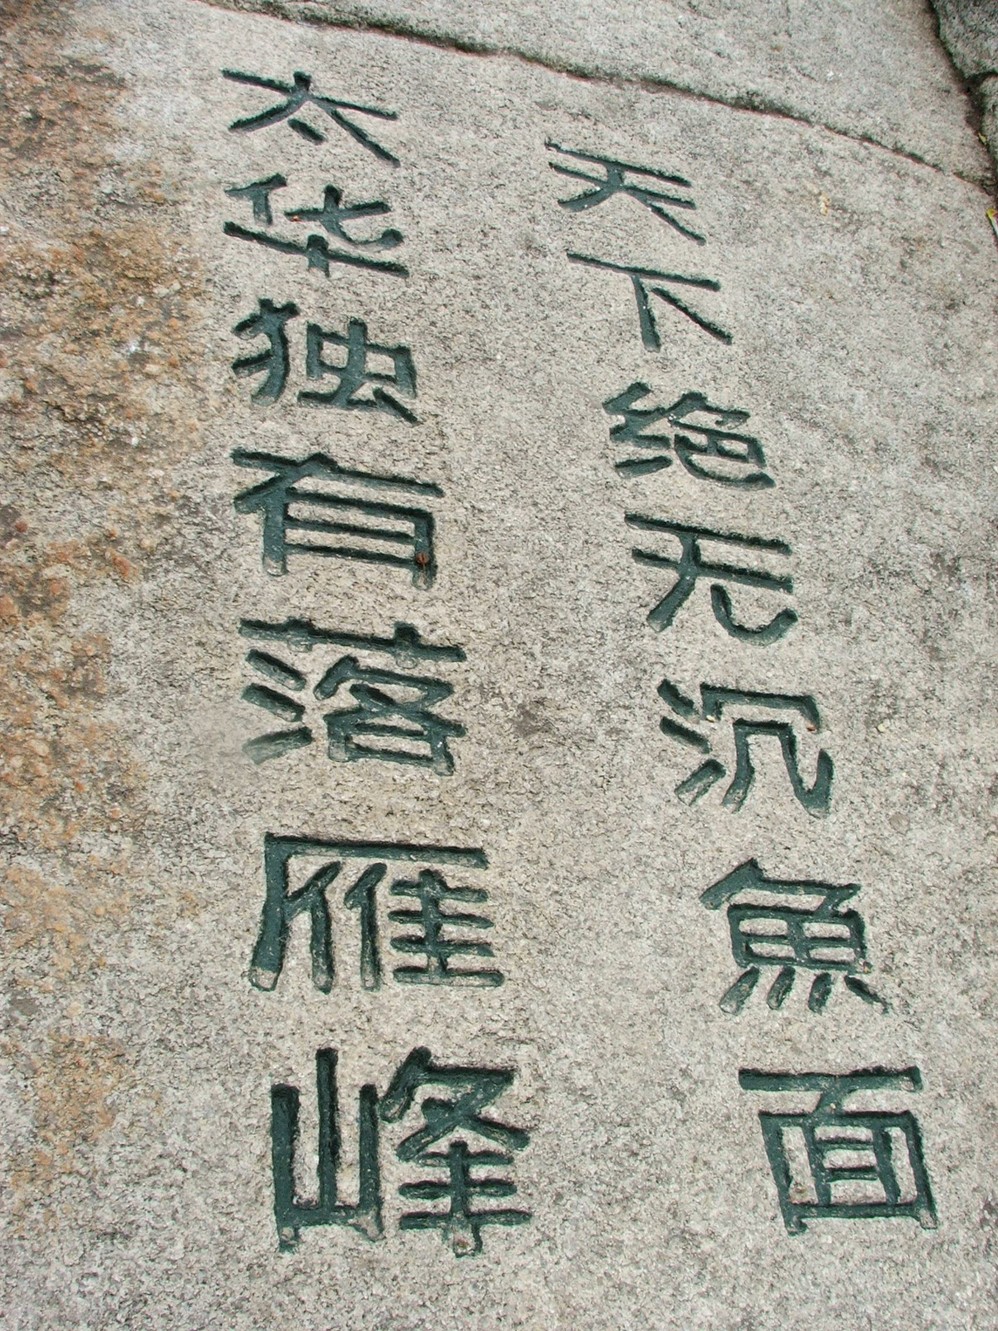 天下绝无沉魚面
太华独有落雁峰